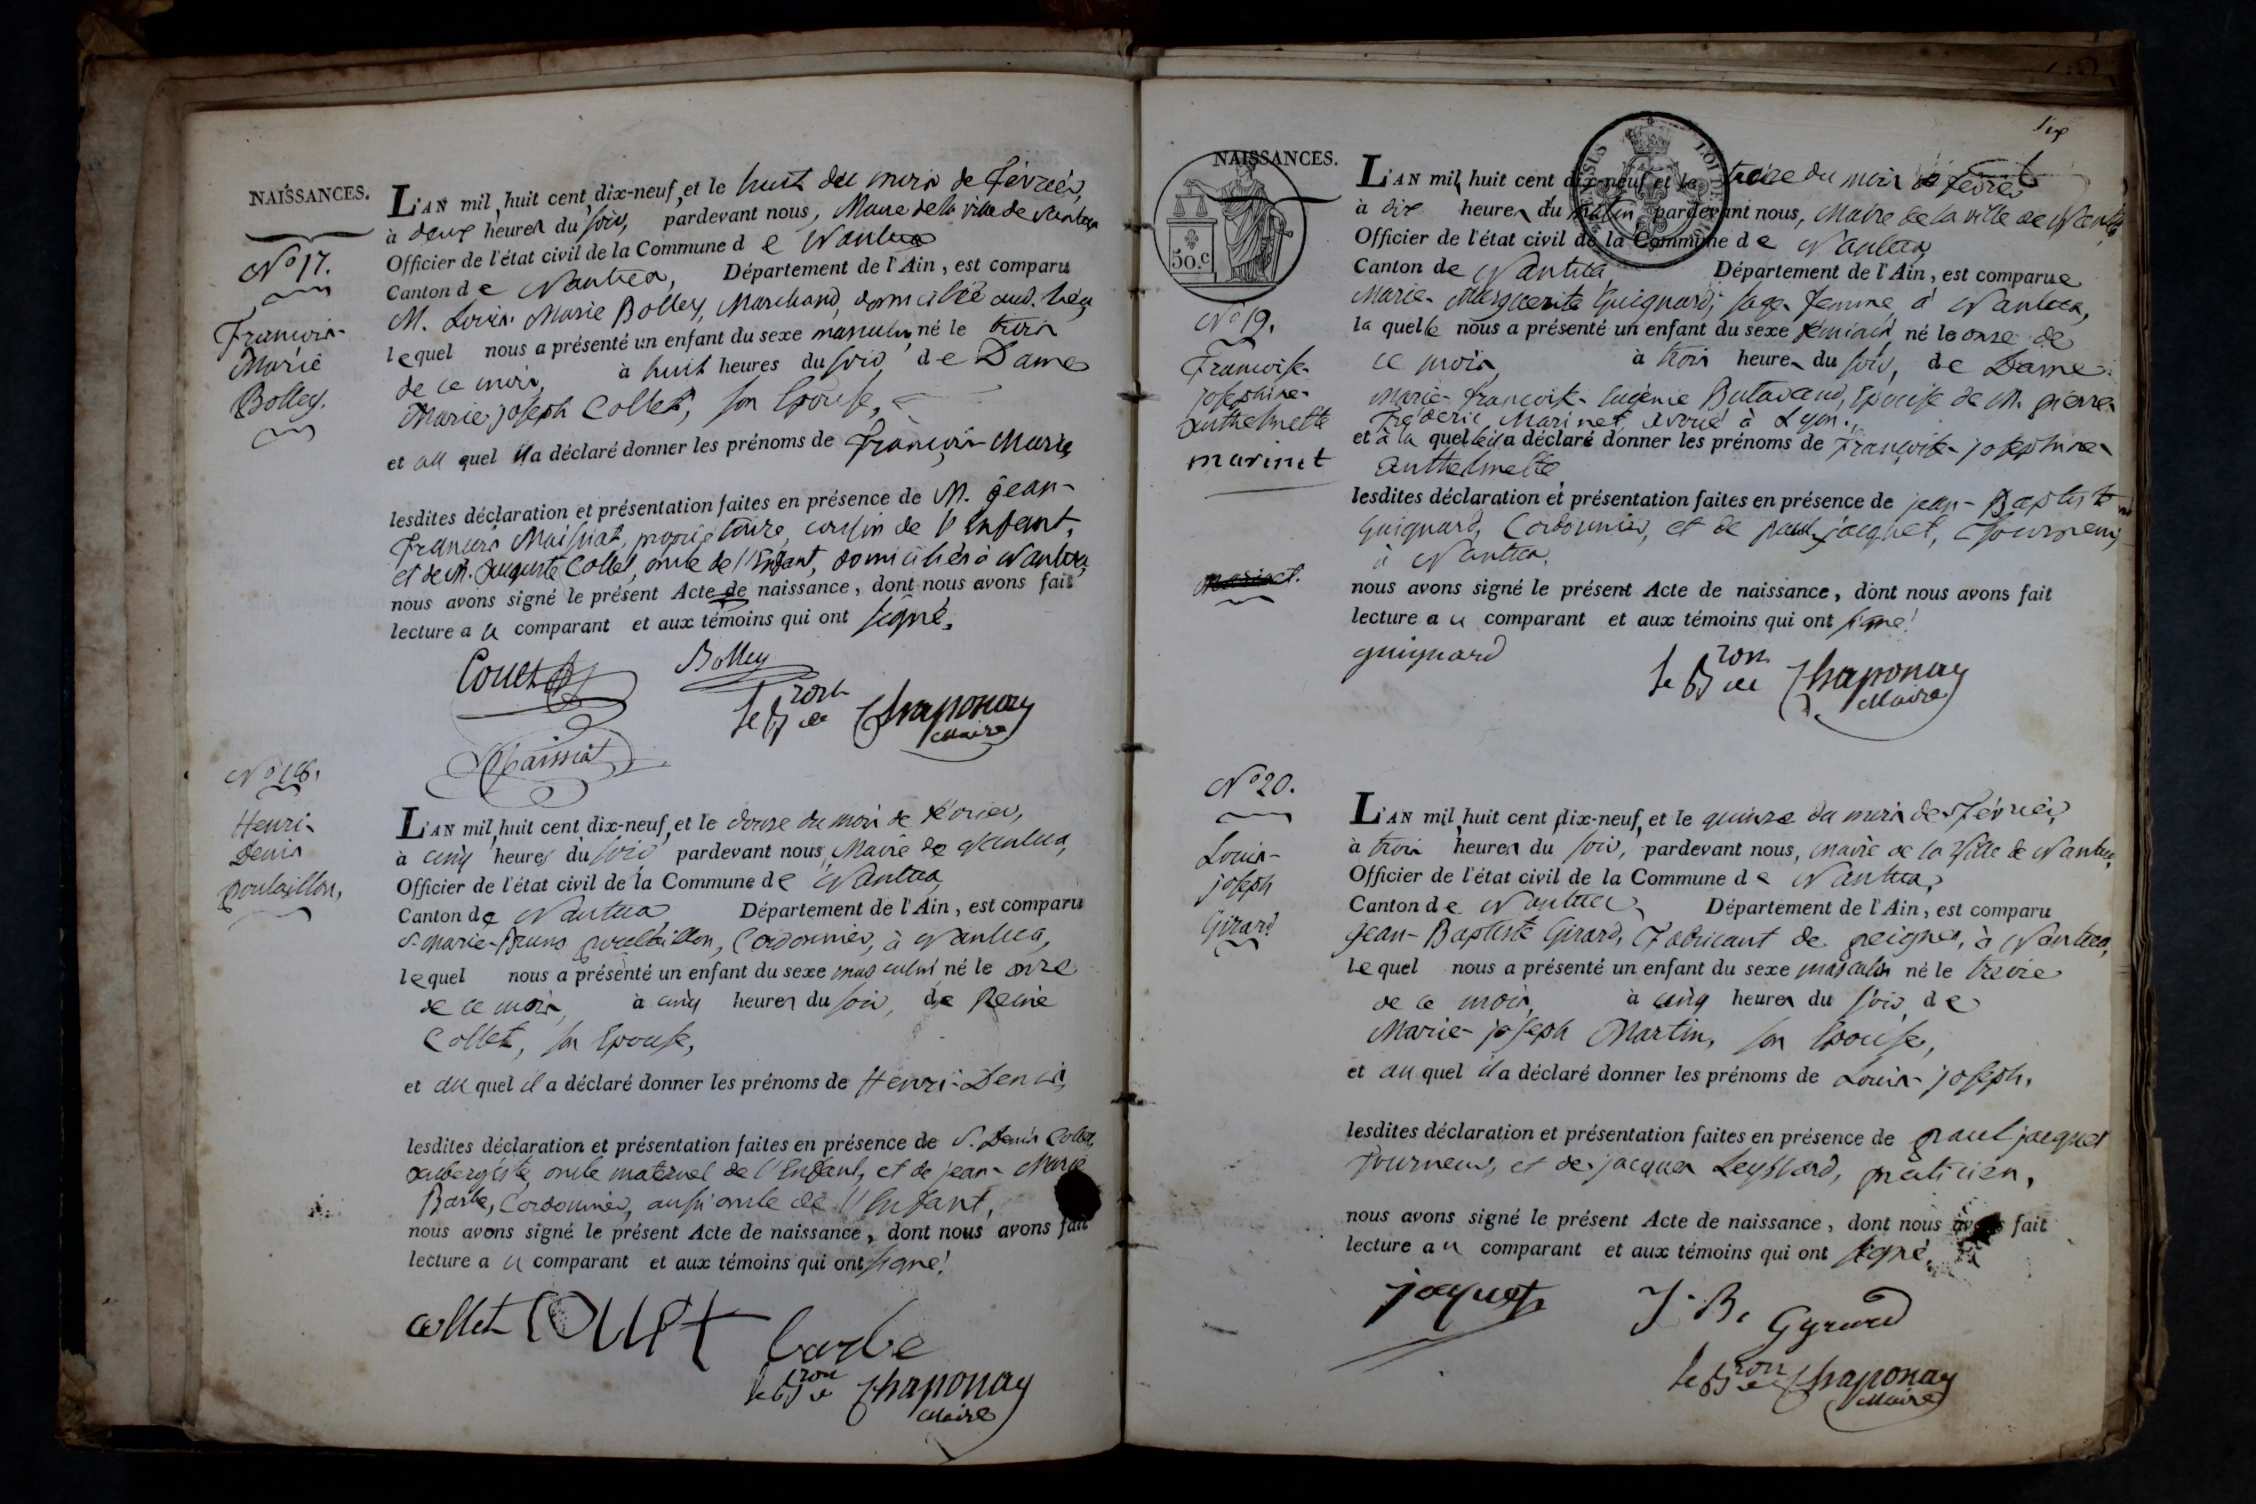 NAISSANCES.
N.º 17.
François-
Marie
Bolley.
L'AN mil huit cent dix-neuf, et le huit du mois de Février,
à deux heures du soir, pardevant nous, Maire de la ville de Nantua
Officier de l'état civil de la Commune de Nantua
Canton de Nantua, Département de l'Ain, est comparu
M. Louis Marie Bolley, Marchand, domicilié aud. lieu
lequel nous a présenté un enfant du sexe masculin, né le trois
de ce mois, à huit heures du soir, de Dame
Marie joseph Collet, son Epouse,
et au quel il a déclaré donner les prénoms de François Marie
lesdites déclaration et présentation faites en présence de M. jean-
François Maissiat, propriétaire, cousin de l'Enfant,
et de M. Auguste Collet, oncle de l'Enfant, domiciliés à Nantua,
nous avons signé le présent Acte de naissance, dont nous avons fait
lecture au comparant et aux témoins qui ont signé.
Collet Bolley
le Bron de Chaponay
Maire
Maissiat
N.º 18.
Henri-
Denis
poulaillon,
L'AN mil huit cent dix-neuf, et le douze du mois de Février,
à cinq heures du soir pardevant nous, Maire de Nantua,
Officier de l'état civil de la Commune de Nantua
Canton de Nantua Département de l'Ain, est comparu
S. Marie-Bruno poulaillon, Cordonnier, à Nantua,
lequel nous a présenté un enfant du sexe masculin né le onze
de ce mois, à cinq heures du soir, de Reine
Collet, son Epouse,
et au quel il a déclaré donner les prénoms de Henri-Denis,
lesdites déclaration et présentation faites en présence de S. Denis Collet,
aubergiste, oncle maternel de l'Enfant, et de jean-Marie
Barbe, Cordonnier, aussi oncle de l'Enfant,
nous avons signé le présent Acte de naissance, dont nous avons fait
lecture au comparant et aux témoins qui ont signé.
collet barbe
le Bron de Chaponay
Maire
Six
NAISSANCES.
50.c
N.º 19.
Françoise-
josephine-
anthelmette
marinet
L'AN mil huit cent dix-neuf et le treize du mois de fevrier
à dix heures du matin pardevant nous, Maire de la ville de Nantua,
Officier de l'état civil de la Commune de Nantua
Canton de Nantua Département de l'Ain, est comparue
Marie-Marguerite Guignard, sage-femme, à Nantua,
la quelle nous a présenté un enfant du sexe féminin né le onze de
ce mois, à trois heures du soir, de Dame
Marie-françoise-Eugénie Butavand, Epouse de M. pierre-
Fréderic Marinet, avoué à Lyon.,
et à la quelle a déclaré donner les prénoms de Françoise-josephine-
anthelmette
lesdites déclaration et présentation faites en présence de jean-Baptiste
Guignard, Cordonnier, et de paul jacquet, Tourneur,
à Nantua.
nous avons signé le présent Acte de naissance, dont nous avons fait
lecture au comparant et aux témoins qui ont signé.
guignard
le Bron de Chaponay
Maire
N.º 20.
Louis-
joseph
Girard
L'AN mil huit cent dix-neuf, et le quinze du mois de Février,
à trois heures du soir, pardevant nous, Maire de la Ville de Nantua,
Officier de l'état civil de la Commune de Nantua,
Canton de Nantua, Département de l'Ain, est comparu
jean-Baptiste Girard, Fabricant de peignes, à Nantua,
lequel nous a présenté un enfant du sexe masculin né le treize
de ce mois, à cinq heures du soir, de
Marie-joseph Martin, son Epouse,
et au quel il a déclaré donner les prénoms de Louis-joseph.
lesdites déclaration et présentation faites en présence de paul jacquet
Tourneur, et de jacques Leyssard, praticien,
nous avons signé le présent Acte de naissance, dont nous avons fait
lecture au comparant et aux témoins qui ont signé.
jacquet J. B. Gyrard
le Bron de Chaponay
Maire